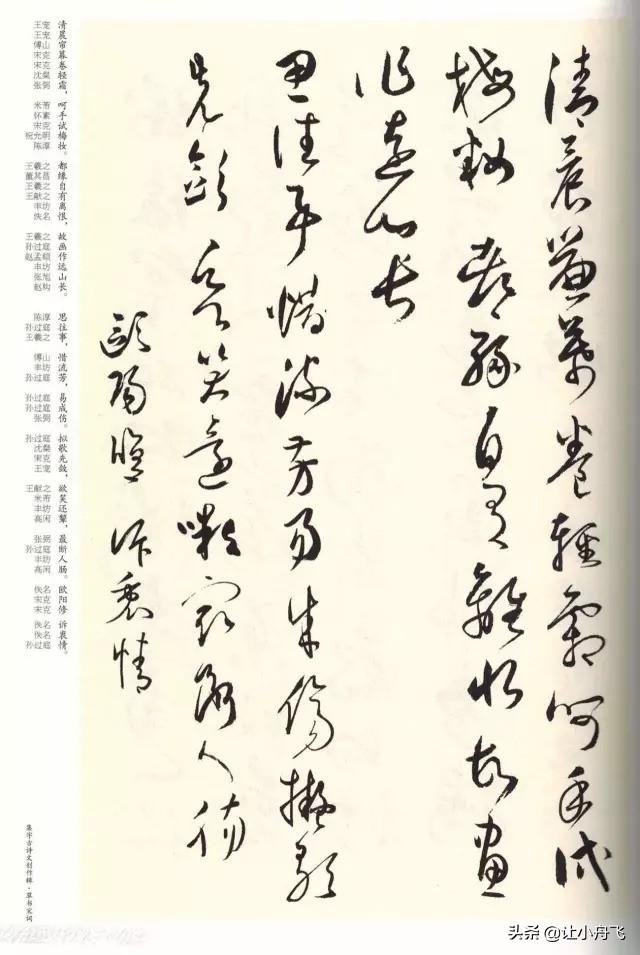 清晨簾幕卷輕霜呵手試
梅妝都緣自有離恨故畫
作遠山長
思往事惜流芳易成傷擬歌
先斂欲笑還顰最斷人腸
歐陽修訴衷情
清晨帘幕卷轻霜，呵手试梅妆。都缘自有离恨，故画作远山长。思往事，惜流芳，易成伤。拟歌先敛，欲笑还颦，最断人肠。欧阳修 诉衷情。
王宠
王宠
傅山
宋克
宋克
沈粲
张弼
米芾
怀素
宋克
祝允明
陈淳
王羲之
董其昌
王羲之
王献之
丰坊
佚名
王羲之
孙过庭
赵孟頫
丰坊
张旭
赵构
陈淳
孙过庭
王羲之
傅山
丰坊
孙过庭
孙过庭
孙过庭
张弼
孙过庭
沈粲
宋克
王宠
王献之
米芾
丰坊
高闲
张弼
孙过庭
丰坊
高闲
佚名
宋克
宋克
佚名
佚名
孙过庭
集字古诗文创作辑·草书宋词
头条 @让小舟飞